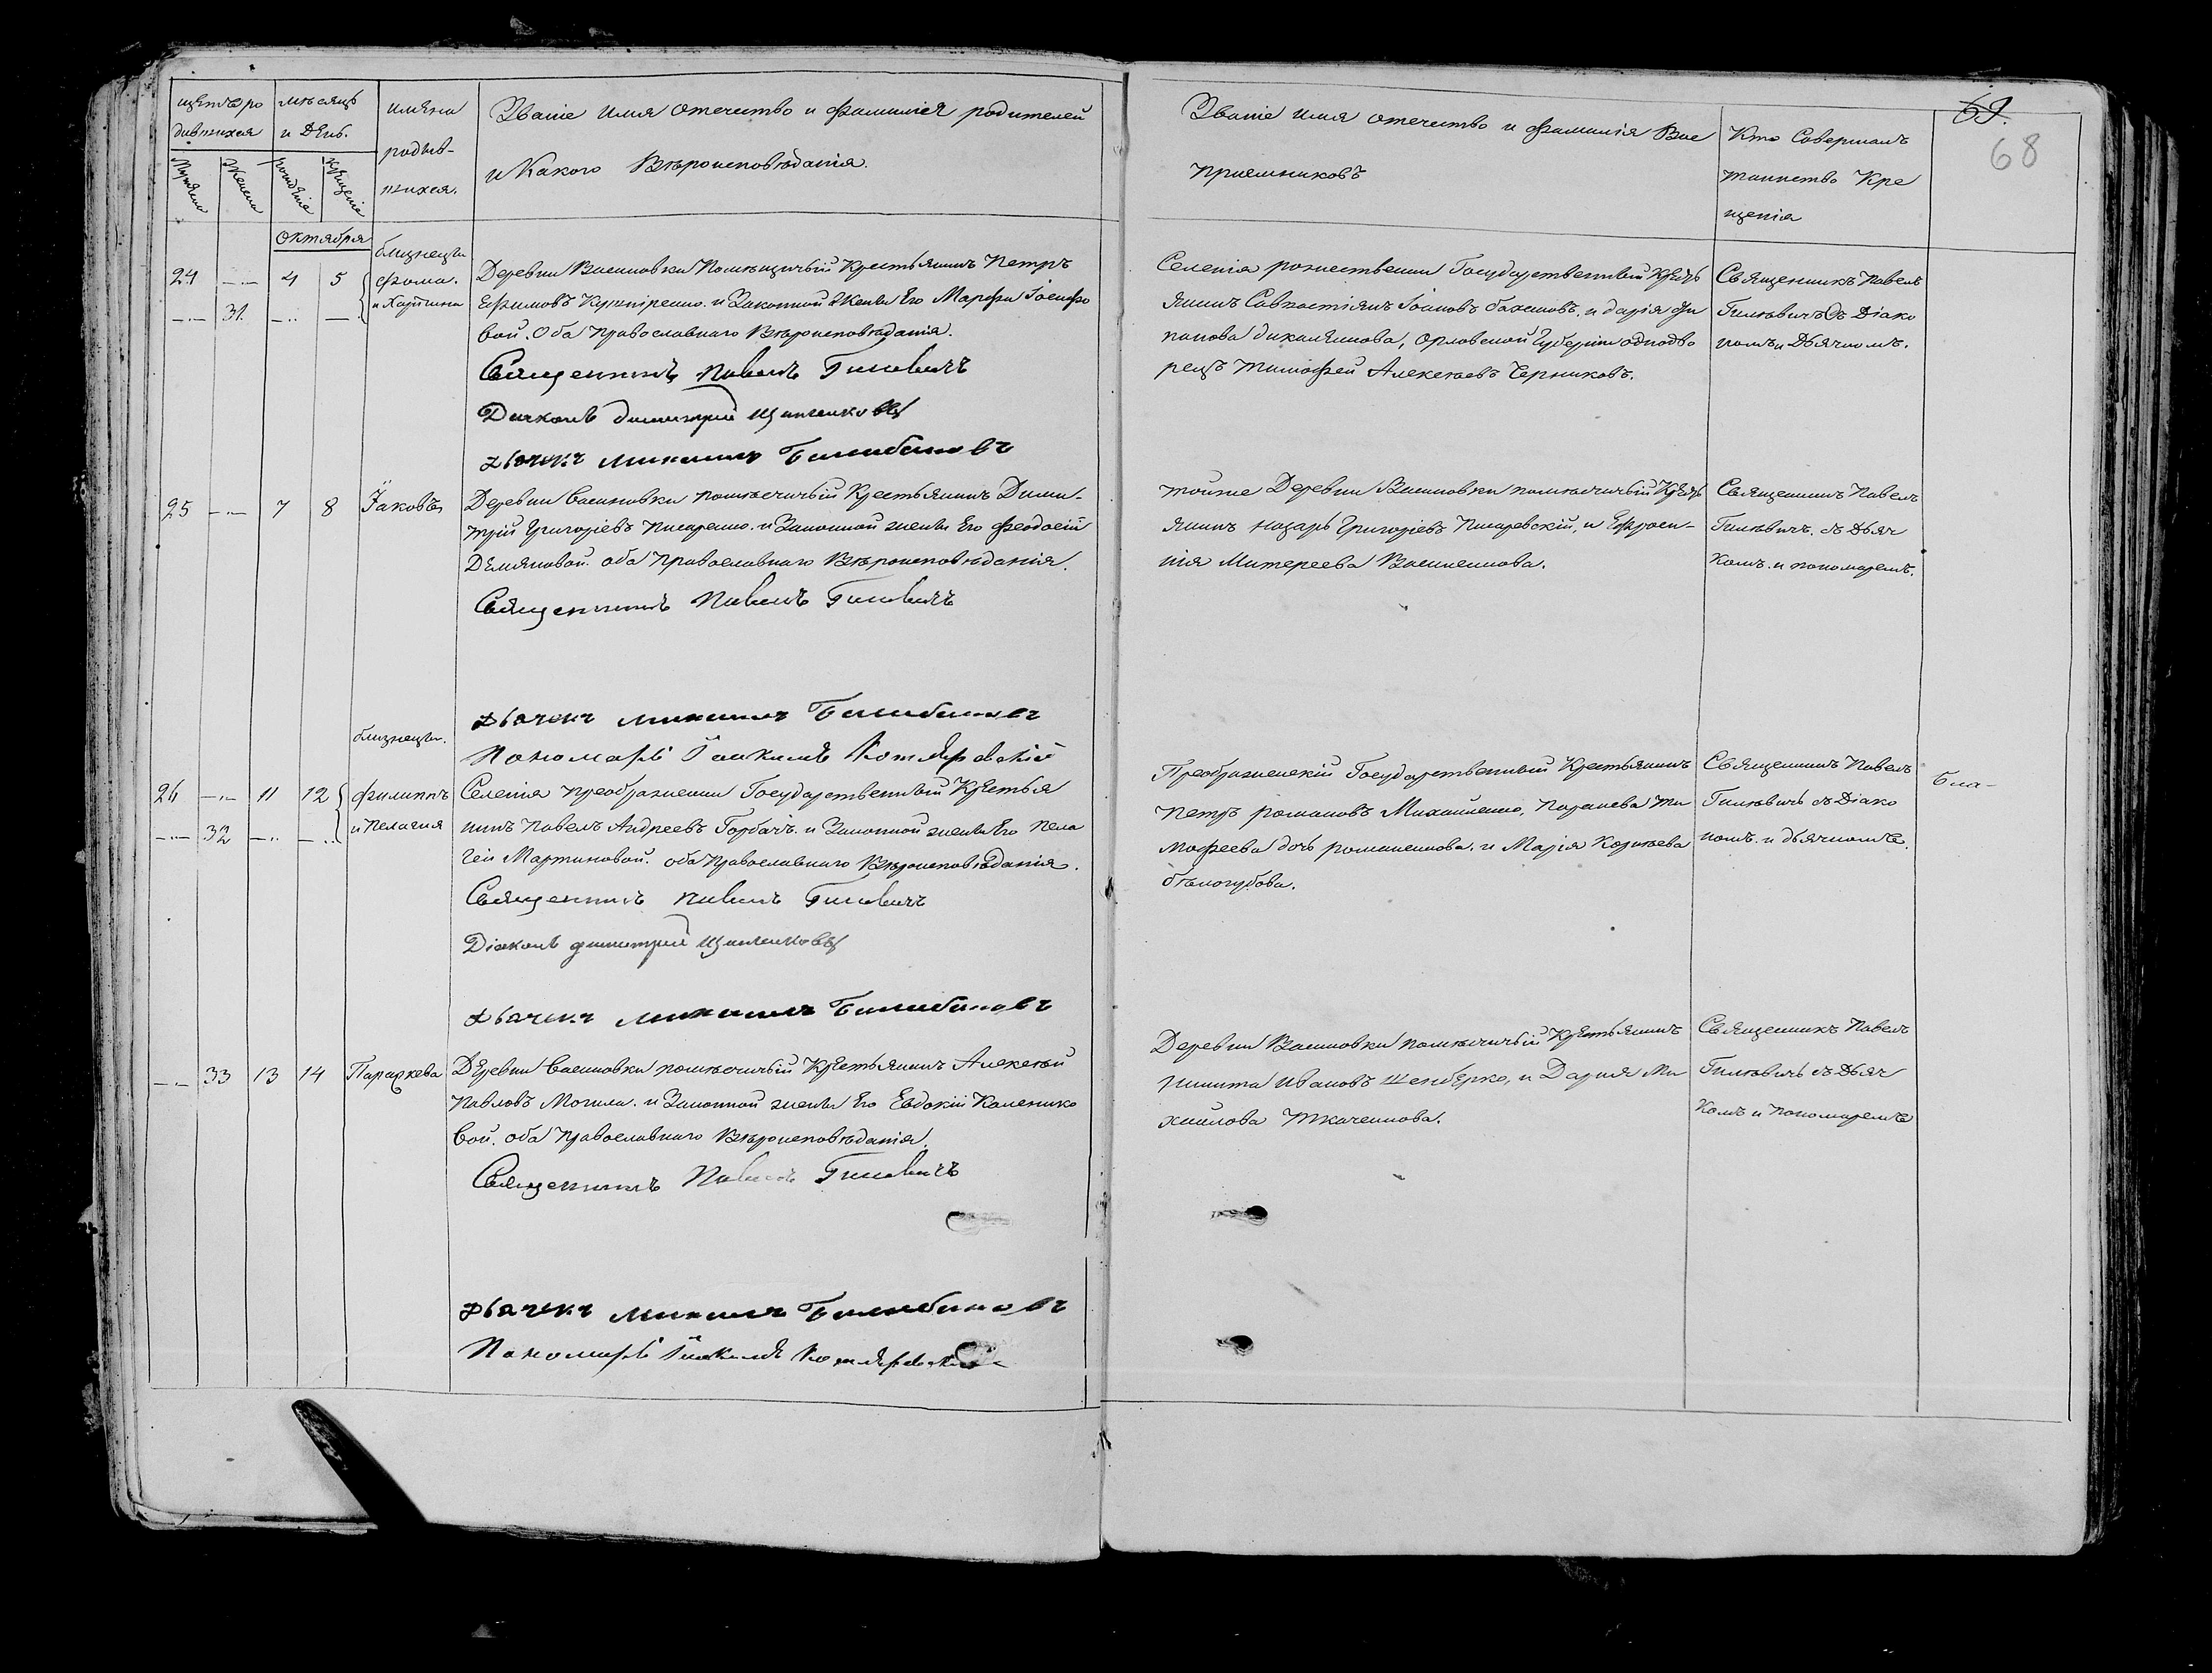 щетъ ро
дившихся
мѣсяцъ
и День.
имяна
родив-
шихся.
Званіе имя отечество и фамилія родителей
и Какого Вѣроисповѣданія.
Мужеска
Женска
рожденіе
Крещеніе
Октября
Званіе имя отечество и фамилія Вос
приемниковъ
Кто Совершалъ
таинство Кре
щенія
69.
68
близнецы
24 4 5 Фома. Деревни Васиновки Помѣщичьій Крестьянинъ Петръ
31. и Харитина Ефимовъ и Законной Жены Его Марфы Іосифо
вой. Оба Православнаго Вѣроисповѣданія.
Священникъ Павелъ Гилевичъ
Диаконъ Димитрій
Дьячекъ Михаилъ
Селенія рожественки Государственный Крестъ
янинъ Савастіянъ Іоановъ и дарія Фи
папова Орловской Губерніи однодво
рецъ Тимофей Алексѣевъ Черниковъ.
Священникъ Павелъ
Гилѣвичъ съ Діако
номъ и Дьячкомъ.
25 7 8 Яковъ Деревни Васиновки помѣсчичьій Крестьянинъ Дими-
трій Григоріевъ Писаренко. и Законной жены Его Феодосіи
Демяновой. оба Православнаго Вѣроисповѣданія.
Священникъ Павелъ Гилевичъ
Дьячекъ Михаилъ
Пономарь Котляревскій
тойже Деревни Васиновки помѣсчичьій Крестъ
янинъ назаръ Григоріевъ Писаревскій, и Ефроси-
нія
Священникъ Павелъ
Гилѣвичъ. съ Дьяч
Комъ. и пономаремъ.
близнецы.
26 11 12 Филиппъ Селенія преображенки Государственный Крестья
32 и Пелагия нинъ Павелъ Андреевъ Горбачъ. и Законной жены Его Пела
геи Мартиновой. оба Православнаго Вѣроисповѣданія.
Священникъ Павелъ Гилевичъ
Діаконъ Димитрій
Дьячекъ Михаилъ
Преображенскій Государственный Крестьянинъ
Петръ романовъ Михайленко, Параскева Ти
мофеева дочь романенкова. и Марія Корнѣева
бѣлогубова.
Священникъ Павелъ
Гилѣвичъ съ Діако
номъ. и дьячкомъ.
бла-
33 13 14 Параскева Деревни Васиновки помѣсчичьій Крестьянинъ Алексѣй
Павловъ Могила. и Законной жены Его Евдокіи Каленико
вой. оба Православнаго Вѣроисповѣданія.
Священникъ Павелъ Гилевичъ
Дьячекъ Михаилъ
Пономарь Котляревскій
Деревни Васиновки помѣсчичьій Крестьянинъ
Никита Ивановъ и Дария Ми
хаилова Ткаченкова.
Священникъ Павелъ
Гилѣвичъ съ Дьяч
Комъ и Пономаремъ